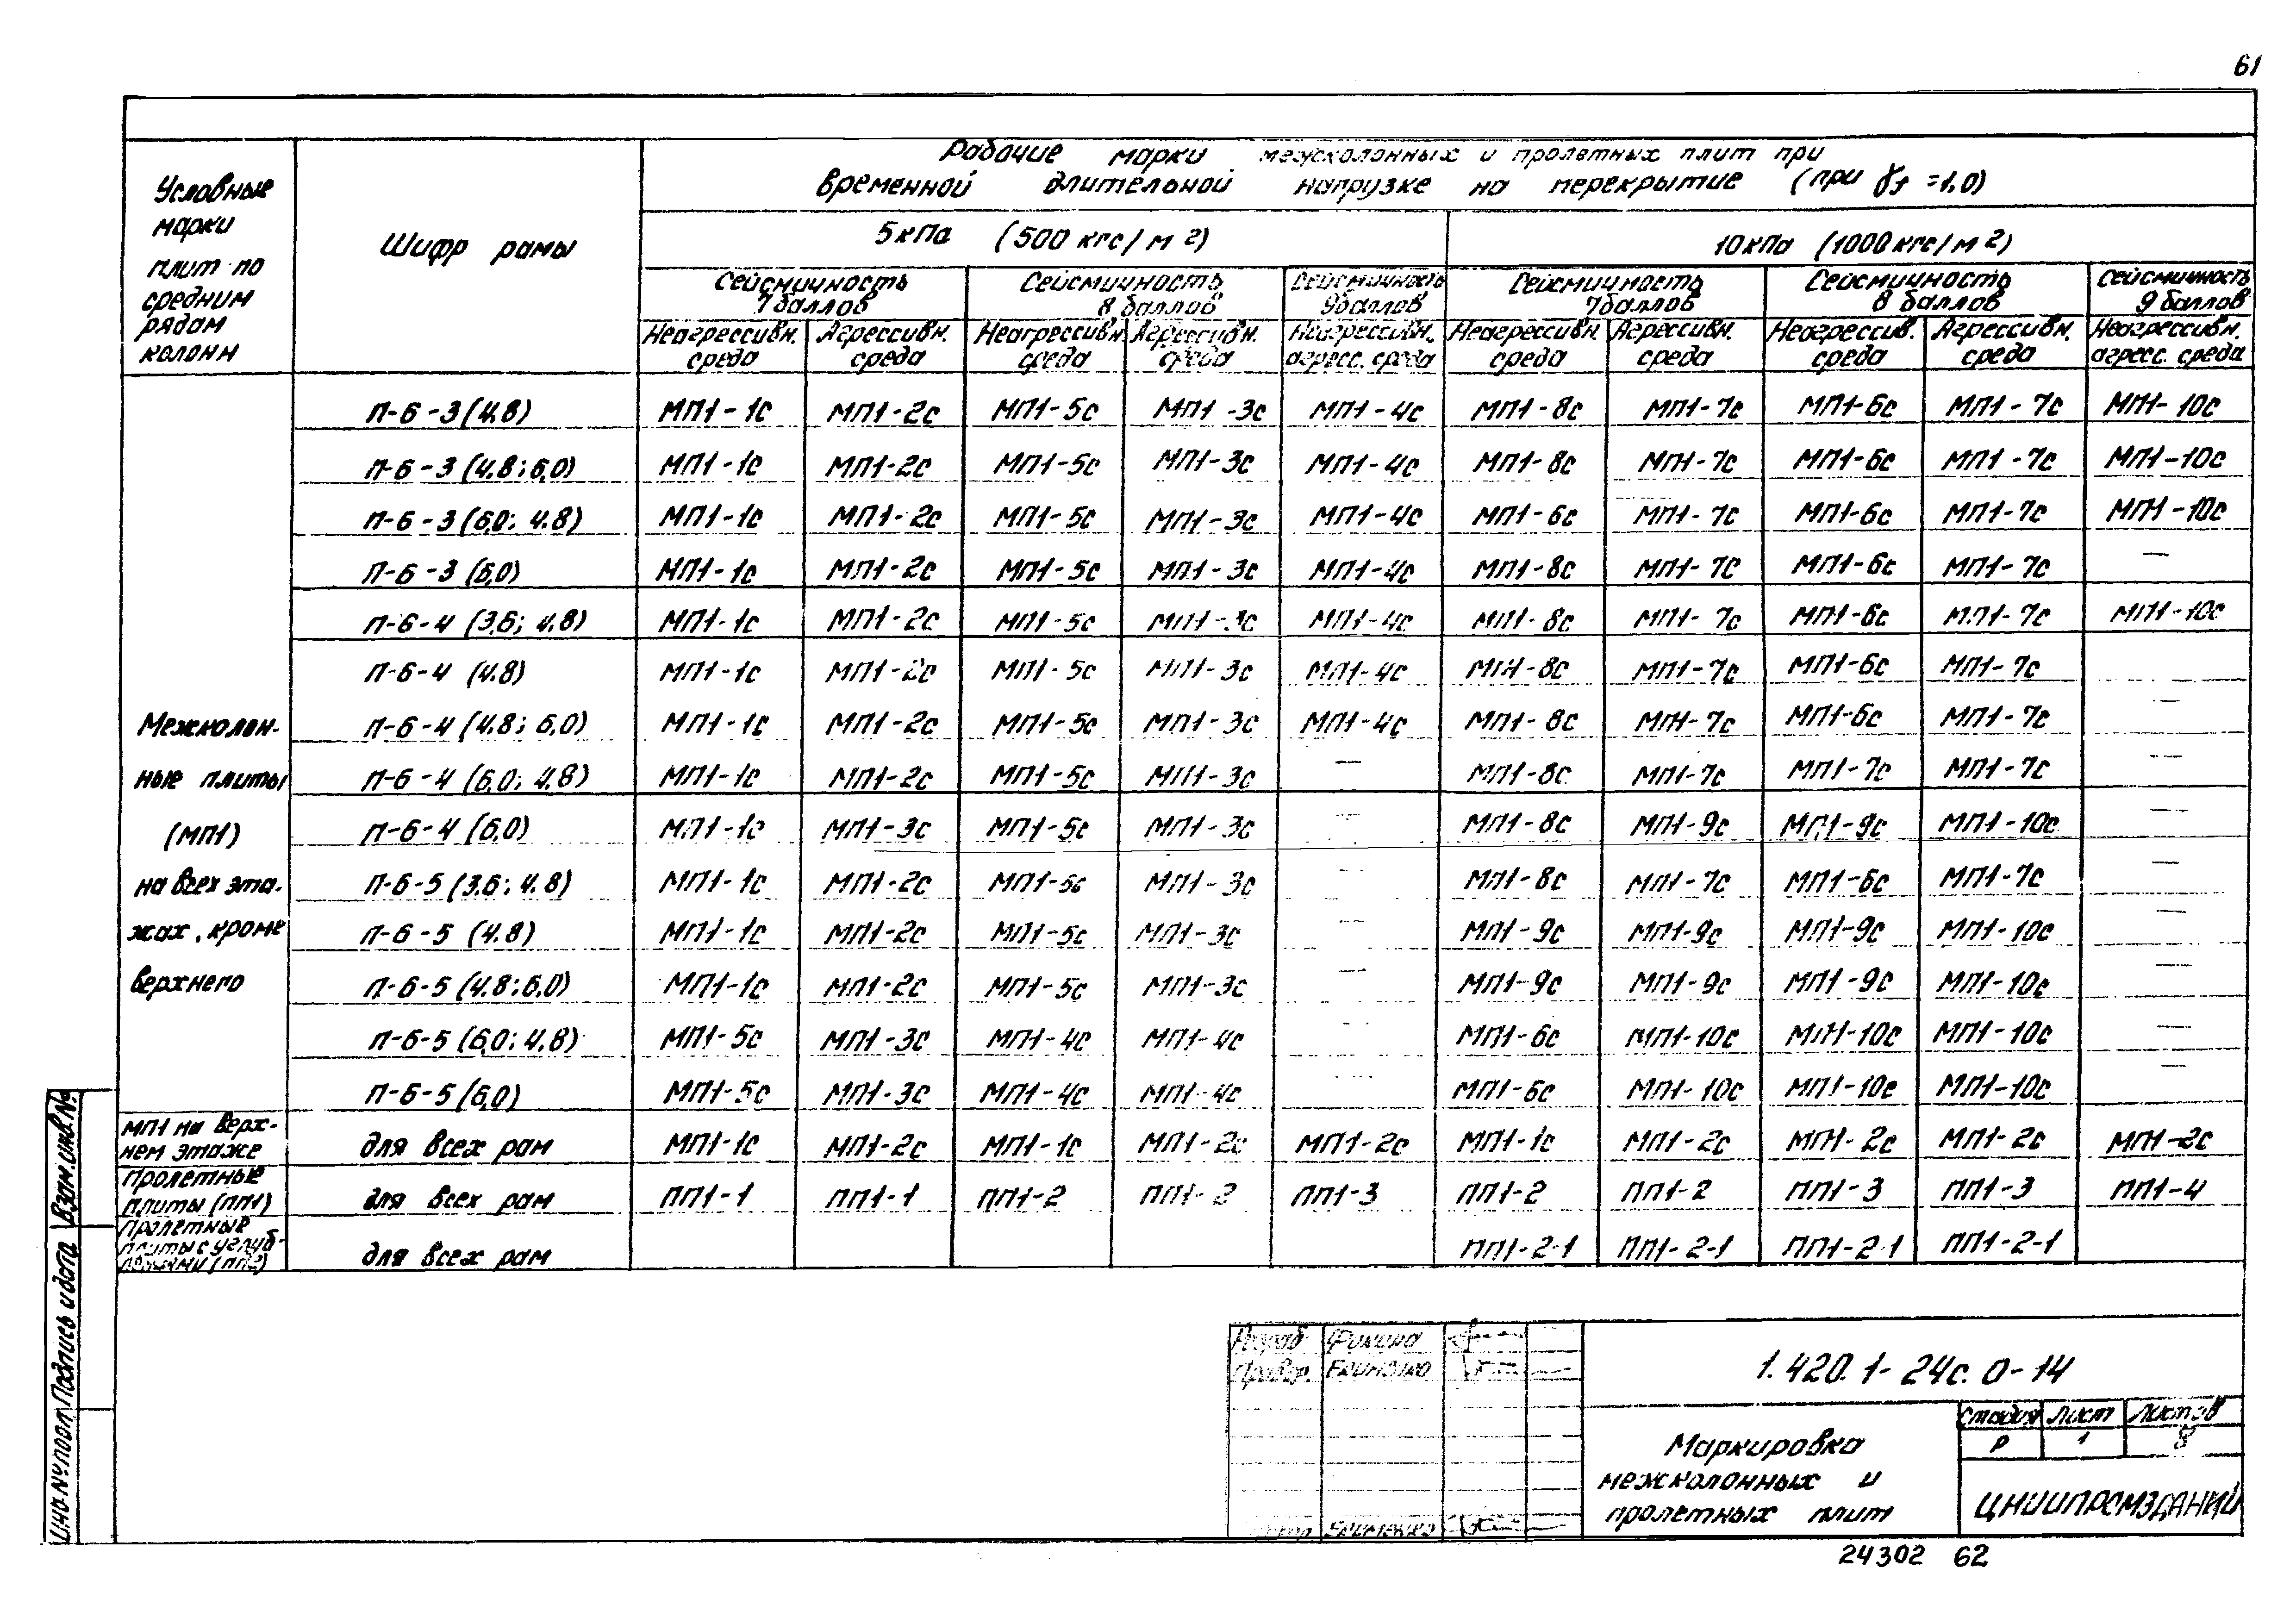 61
Рабочие марки межколонных и пролетных плит при
временной длительной нагрузке на перекрытие (при γf =1,0)
Условные
марки
плит по
средним
рядам
колонн
Шифр рамы
5кПа (500 кгс/м²)
10кПа (1000кгс/м²)
Сейсмичность 7 баллов
Сейсмичность 8 баллов
Сейсмичность 9баллов
Сейсмичность 7баллов
Сейсмичность 8 баллов
Сейсмичность 9 баллов
Неагрессивн. среда
Агрессивн. среда
Неагрессивн. среда
Агрессивн. среда
Неагрессивн. агресс. среда
Неагрессивн. среда
Агрессивн. среда
Неагрессив. среда
Агрессивн. среда
Неагрессивн. агресс. среда
П-6-3 (4,8) МП1-1с МП1-2с МП1-5с МП1-3с МП1-4с МП1-8с МП1-7с МП1-6с МП1-7с МП1-10с
П-6-3 (4,8; 6,0) МП1-1с МП1-2с МП1-5с МП1-3с МП1-4с МП1-8с МП1-7с МП1-6с МП1-7с МП1-10с
П-6-3 (6,0; 4,8) МП1-1с МП1-2с МП1-5с МП1-3с МП1-4с МП1-6с МП1-7с МП1-6с МП1-7с МП1-10с
П-6-3 (6,0) МП1-1с МП1-2с МП1-5с МП1-3с МП1-4с МП1-8с МП1-7с МП1-6с МП1-7с —
П-6-4 (3,6; 4,8) МП1-1с МП1-2с МП1-5с МП1-3с МП1-4с МП1-8с МП1-7с МП1-6с МП1-7с МП1-10с
П-6-4 (4,8) МП1-1с МП1-2с МП1-5с МП1-3с МП1-4с МП1-8с МП1-7с МП1-6с МП1-7с
П-6-4 (4,8; 6,0) МП1-1с МП1-2с МП1-5с МП1-3с МП1-4с МП1-8с МП1-7с МП1-6с МП1-7с —
П-6-4 (6,0; 4,8) МП1-1с МП1-2с МП1-5с МП1-3с — МП1-8с МП1-7с МП1-7с МП1-7с —
П-6-4 (6,0) МП1-1с МП1-3с МП1-5с МП1-3с — МП1-8с МП1-9с МП1-9с МП1-10с —
П-6-5 (3,6; 4,8) МП1-1с МП1-2с МП1-5с МП1-3с — МП1-8с МП1-7с МП1-6с МП1-7с —
П-6-5 (4,8) МП1-1с МП1-2с МП1-5с МП1-3с — МП1-9с МП1-9с МП1-9с МП1-10с —
П-6-5 (4,8; 6,0) МП1-1с МП1-2с МП1-5с МП1-3с — МП1-9с МП1-9с МП1-9с МП1-10с —
П-6-5 (6,0; 4,8) МП1-5с МП1-3с МП1-4с МП1-4с — МП1-6с МП1-10с МП1-10с МП1-10с —
П-6-5 (6,0) МП1-5с МП1-3с МП1-4с МП1-4с — МП1-6с МП1-10с МП1-10с МП1-10с —
Межколон-
ные плиты
(МП1)
на всех эта-
жах, кроме
верхнего
МП1 на верх-
нем этаже
для всех рам МП1-1с МП1-2с МП1-1с МП1-2с МП1-2с МП1-1с МП1-2с МП1-2с МП1-2с МП1-2с
Пролетные
плиты (ПП1)
для всех рам ПП1-1 ПП1-1 ПП1-2 ПП1-2 ПП1-3 ПП1-2 ПП1-2 ПП1-3 ПП1-3 ПП1-4
Пролетные
плиты с углуб-
лениями (ПП2)
для всех рам ПП1-2-1 ПП1-2-1 ПП1-2-1 ПП1-2-1
Инв.№ подл. Подпись и дата Взам.инв.№
Разраб
Провер.
1.420.1-24с. 0-14
Маркировка
межколонных и
пролетных плит
Стадия Лист Листов
Р 1 8
ЦНИИПРОМЗДАНИЙ
24302 62